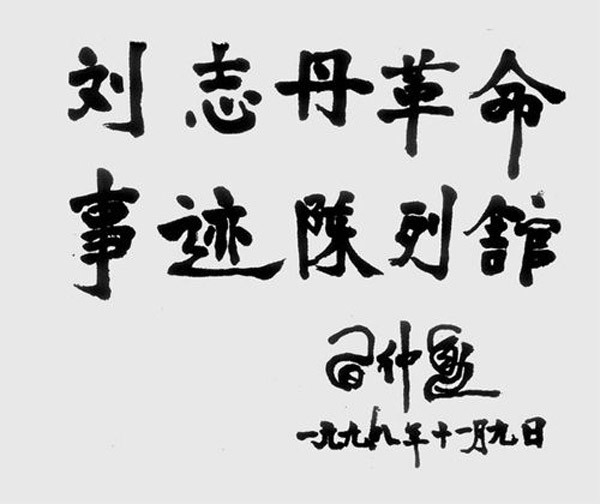 刘志丹革命
事迹陳列舘
习仲勋
一九九八年十一月九日